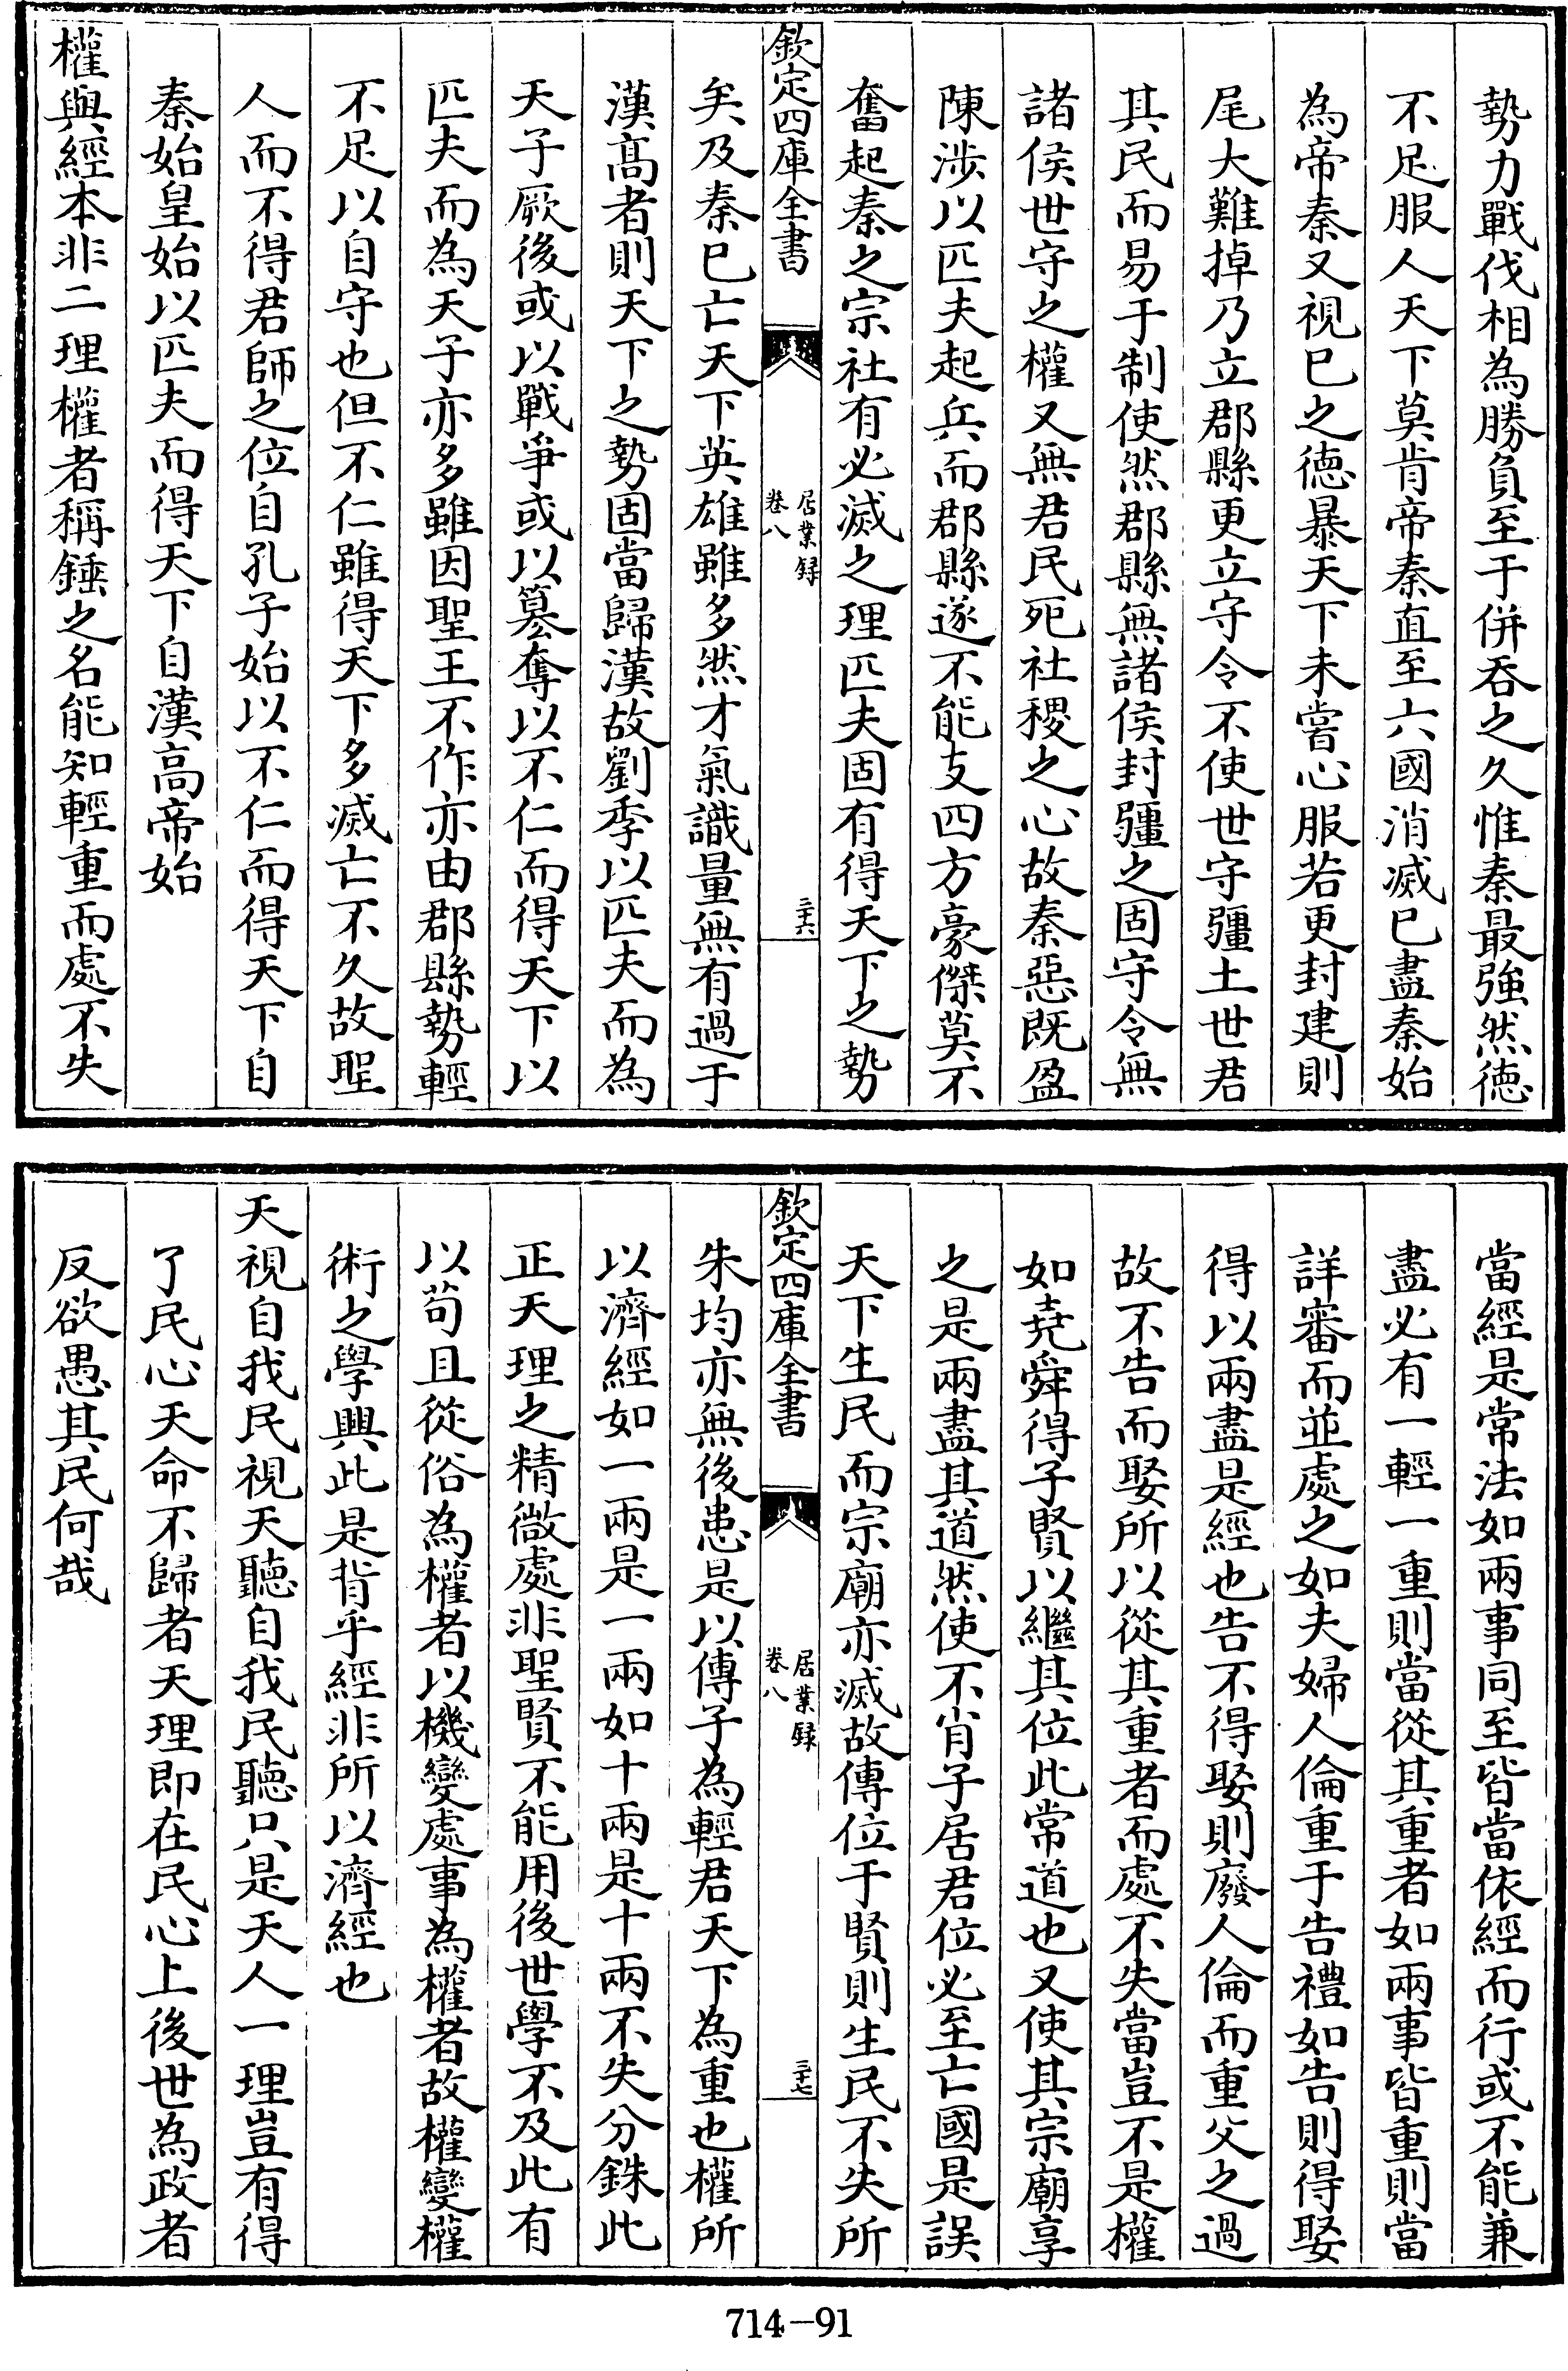 勢力戰伐相為勝負至于併吞之久惟秦最強然徳
不足服人天下莫肯帝秦直至六國消滅已盡秦始
為帝秦又視已之徳暴天下未嘗心服若更封建則
尾大難掉乃立郡縣更立守令不使世守疆土世君
其民而易于制使然郡縣無諸侯封疆之固守令無
諸侯世守之權又無君民死社稷之心故秦惡既盈
陳渉以匹夫起兵而郡縣遂不能支四方豪傑莫不
奮起秦之宗社有必滅之理匹夫固有得天下之勢
欽定四庫全書
居業録
卷八
三十六
矣及秦已亡天下英雄雖多然才氣識量無有過于
漢髙者則天下之勢固當歸漢故劉季以匹夫而為
天子厥後或以戰爭或以簒奪以不仁而得天下以
匹夫而為天子亦多雖因聖王不作亦由郡縣勢輕
不足以自守也但不仁雖得天下多滅亡不久故聖
人而不得君師之位自孔子始以不仁而得天下自
秦始皇始以匹夫而得天下自漢高帝始
權與經本非二理權者稱錘之名能知輕重而處不失
當經是常法如兩事同至皆當依經而行或不能兼
盡必有一輕一重則當從其重者如兩事皆重則當
詳審而並處之如夫婦人倫重于告禮如告則得娶
得以兩盡是經也告不得娶則廢人倫而重父之過
故不告而娶所以從其重者而處不失當豈不是權
如堯舜得子賢以繼其位此常道也又使其宗廟享
之是兩盡其道然使不肖子居君位必至亡國是誤
天下生民而宗廟亦滅故傳位于賢則生民不失所
欽定四庫全書
居業録
卷八
三十七
朱均亦無後患是以傳子為輕君天下為重也權所
以濟經如一兩是一兩如十兩是十兩不失分銖此
正天理之精微處非聖賢不能用後世學不及此有
以苟且從俗為權者以機變處事為權者故權變權
術之學興此是背乎經非所以濟經也
天視自我民視天聽自我民聽只是天人一理豈有得
了民心天命不歸者天理即在民心上後世為政者
反欲愚其民何哉
714-91